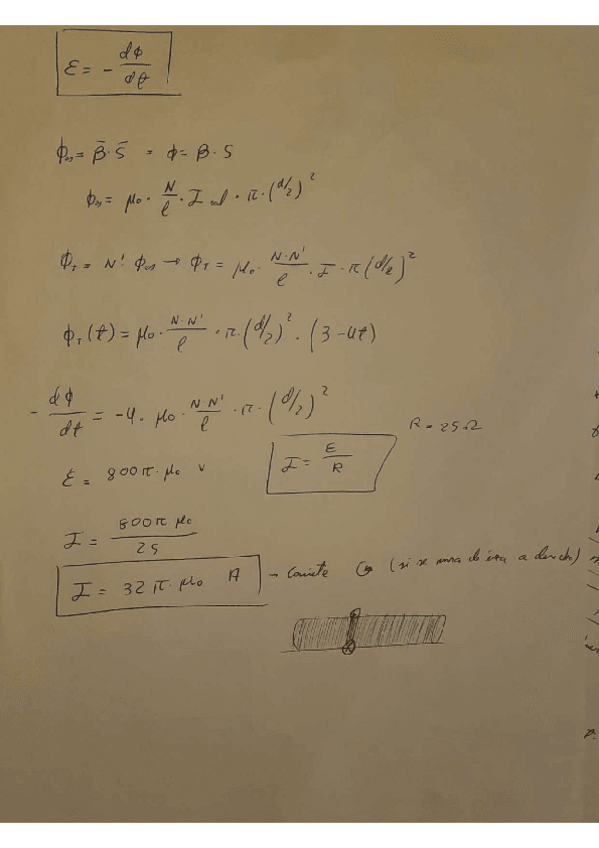 ε = - dφ/dt
φₛ = B̄ · S̄ = φ = B · S
φₛ = μ₀ · N/l · I sol · π · (d/2)²
φ_T = N' φₛ → φ_T = μ₀ · N·N'/l · I · π (d/2)²
φ_T(t) = μ₀ · N·N'/l · π · (d/2)² · (3-4t)
- dφ/dt = -4 · μ₀ · N·N'/l · π · (d/2)²
R = 25 Ω
ε = 800 π · μ₀ V
I = E/R
I = 800 π μ₀/25
I = 32 π · μ₀ A → (si se mira de izq a derecha)